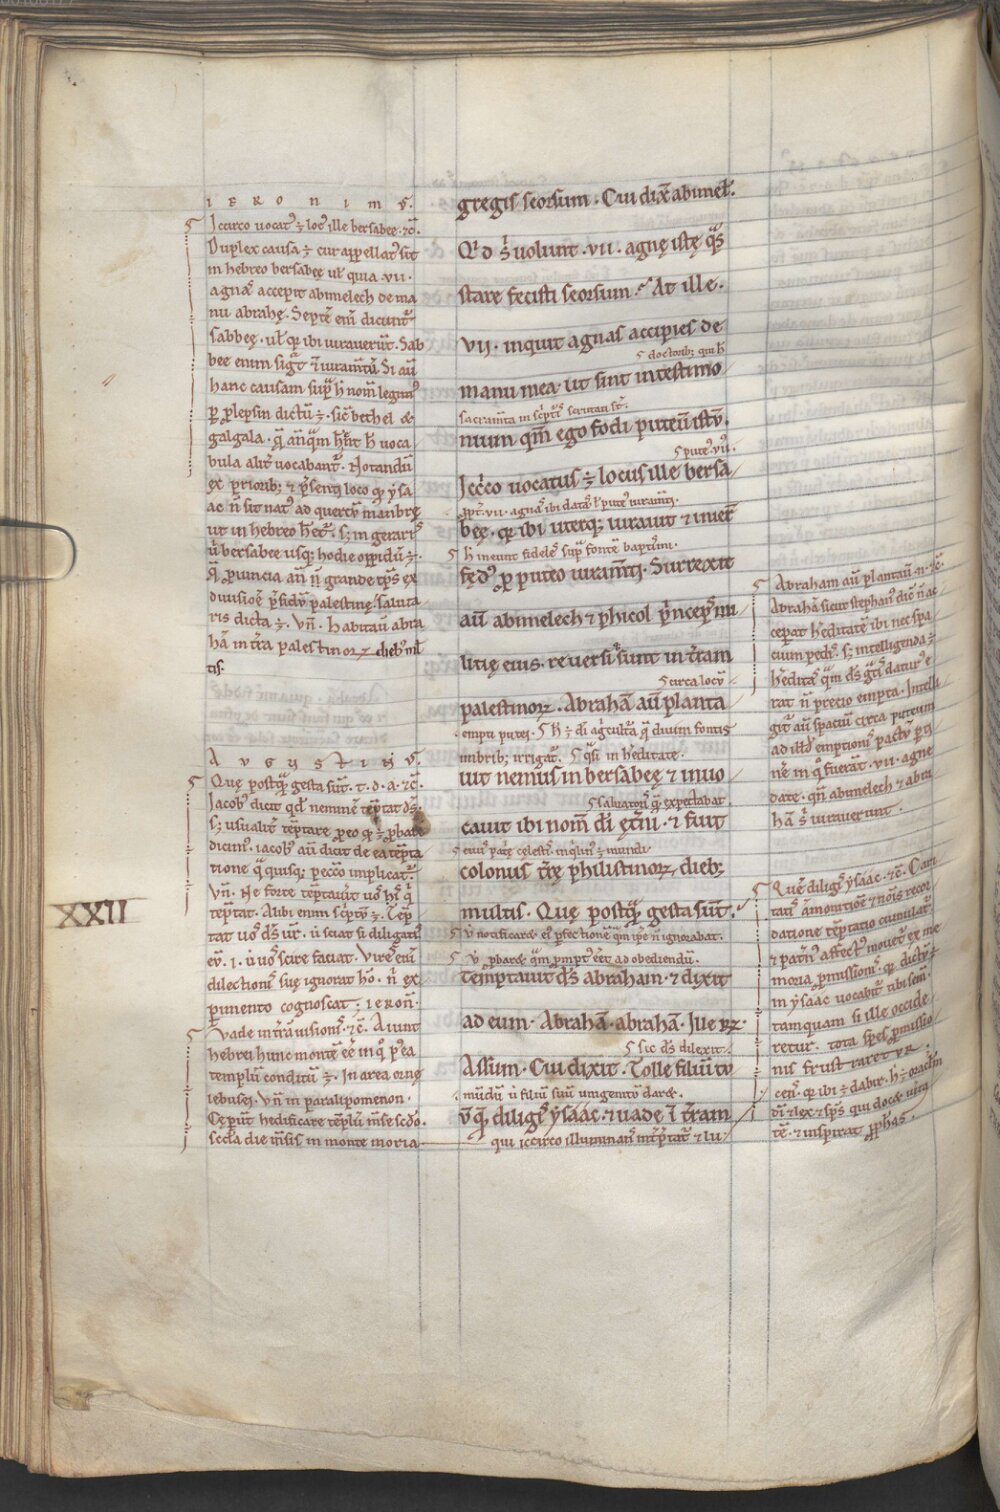 IERONIMꝰ.
Iccirco uocatꝰ ÷ locꝰ ille bersabee. ⁊c̄.
Duplex causa ÷ cur appellatꝰ sit
in hebreo bersabeę ul̄ quia .vii.
agnaſ accepit abimelech de ma
nu abrahę. Septē eni᷒ dicunt᷒
sabbeę. ul̄ qꝛ ibi iurauer̄t. Sab
bee enim
hanc causam sup̄ h̄ nom̄ legimꝰ
ꝑ ꝓlepsin dictū ÷. sic̄ bethel &
galgala.
bula alit̄ uocabant᷒. Notandū
ex priorib; ⁊ p̄sentiſ loco qꝛ ysa
ac n̄ sit natꝰ ad quercū manbrę
ut in hebreo s; in geraris
bersabee usq; hodie oppidū ÷.
ꝓuincia grande tp̄s ex
diuisiōe palestinę, saluta
ris dicta ÷. Vn̄. habitauit abra
hā in t̄ra palestinorꝝ dieb; mul
tis.
AVGVSTINꝰ
Quę postq̄ gesta sūt. t. d. a. ⁊c̄.
Iacobꝰ dicit qd̄ nemine᷒ te᷒ptat ds̄.
s; usualit̄ te᷒ptare ꝓ eo qꝛ ÷ ꝓbare
dicim᷒. iacobꝰ au᷒ dicit de ea te᷒pta
tione q̄ quisq; pecc̄o implicat᷒.
Vn̄. Ne forte te᷒ptauit uoſ hiſ q̄
te᷒ptat. Alibi enim scptū ÷. Te᷒p
tat uoſ ds̄ ur̄. ut sciat si diligatiſ
eū. .i. ut uoſ scire faciat. Vireſ eni᷒
dilectioniſ suę ignorat hō. n̄ ex
perimento cognoscat; ieron̄.
Vade in t̄rā uisioniſ. ⁊c̄. Aiunt
hebrei hunc montē eē in qͦ pꝰea
templū conditū ÷. In area ornę
iebusei. Vn̄ in paralipomenon.
Cęper̄t hedificare te᷒plū m̄se sc̄do.
sec̄da die m̄sis in monte moria
gregis seorsum. Cui dix̄ abimel̄.
Qͥd s᷒ uolunt .vii. agnę istę qͣſ
stare fecisti seorsum. At ille.
VII. inquit agnas accipies de
doctorib; qui h̄
manu mea. ut sint in testimo
sacram̄ta in scpt̄iſ scrutati st̄.
nium qm̄ ego fodi puteū istū.
puteꝰ .vii.
Iccͦco uocatus ÷ locus ille bersa
ꝓpt̄ .vii. agnaſ ibi dataſ ł puteꝰ iuram̄ti.
beę. qꝛ ibi uterq; iurauit ⁊ inier̄
h̄ ineunt fideleſ sup̄ fontē baptismi.
fędꝰ ꝓ puteo iuram̄ti. Surrexit
au᷒ abimelech ⁊ phicol pͥncepſ mi
litię eius. reuersiͥ sunt in t̄ram
circa locū
palestinorꝝ. Abrahā au᷒ planta
empti putei. h̄ ÷ di᷒ agͥcult̄a q̄ diuini fontis
imbrib; irrigat᷒. qͣsi in h̄editate.
uit nemus in bersabeę ⁊ inuo
saluatorē quē expectabat.
cauit ibi nom̄ di᷒ ęt̄ni. ⁊ fuit
eiuſ patͥę celestiſ inqͥlinꝰ ÷ mundi.
colonus t̄rę philistinorꝝ dieb;
multis. Quę postq̄ gesta sūt.
ut notificaret eiꝰ ꝑfectionē quā ipē n̄ ignorabat.
ut ꝓbaret quā promptꝰ eēt ad obediendū.
temptauit ds̄ abraham. ⁊ dixit
ad eum. Abrahā. abrahā. Ille
sic ds̄ dilexit.
Assum. Cui dixit. Tolle filiū tuū
mūdū ut filiū suū unigenitū daret.
quē diligiſ ysaac. ⁊ uade ī t̄ram
qui iccirco illuminanſ int̄p̄tat᷒ ⁊ lu
Abraham au᷒ plantau᷒. n. ⁊c̄.
Abrahā sicut stephanꝰ dic̄ n̄ ac
ceperat h̄editatē ibi nec spa
cium pediſ. s; intelligenda ÷
h̄editaſ quā ds̄ gͣtiſ daturꝰ e
rat n̄ precio empta. Intelli
git᷒ au᷒ spaciū circa puteum
ad illd̄ emptioniſ pactū perti
nēſ in qͦ fuerant .vii. agnę
datę. qn̄ abimelech ⁊ abra
hā s᷒ iurauerunt.
Quē diligiſ ysaac. ⁊c̄. Cari
tatiſ am̄onitiōe ⁊ noīs recor
datione te᷒ptatio cumulat᷒
⁊ patn̄ꝰ affectꝰ mouet᷒ ex me
moria ꝓmissioniſ. qꝛ dictū ÷
in ysaac uocabit᷒ tibi sem̄.
tamquam si ille occide
retur. tota speſ ꝓmissio
nis frustraretur.
cenſ. qꝛ ibi ÷ dabir. h̄ ÷ oraclm̄
di᷒ ⁊ lex ⁊ sps̄ qui docet uita
tē. ⁊ inspirat ꝓphetaſ.
XXII